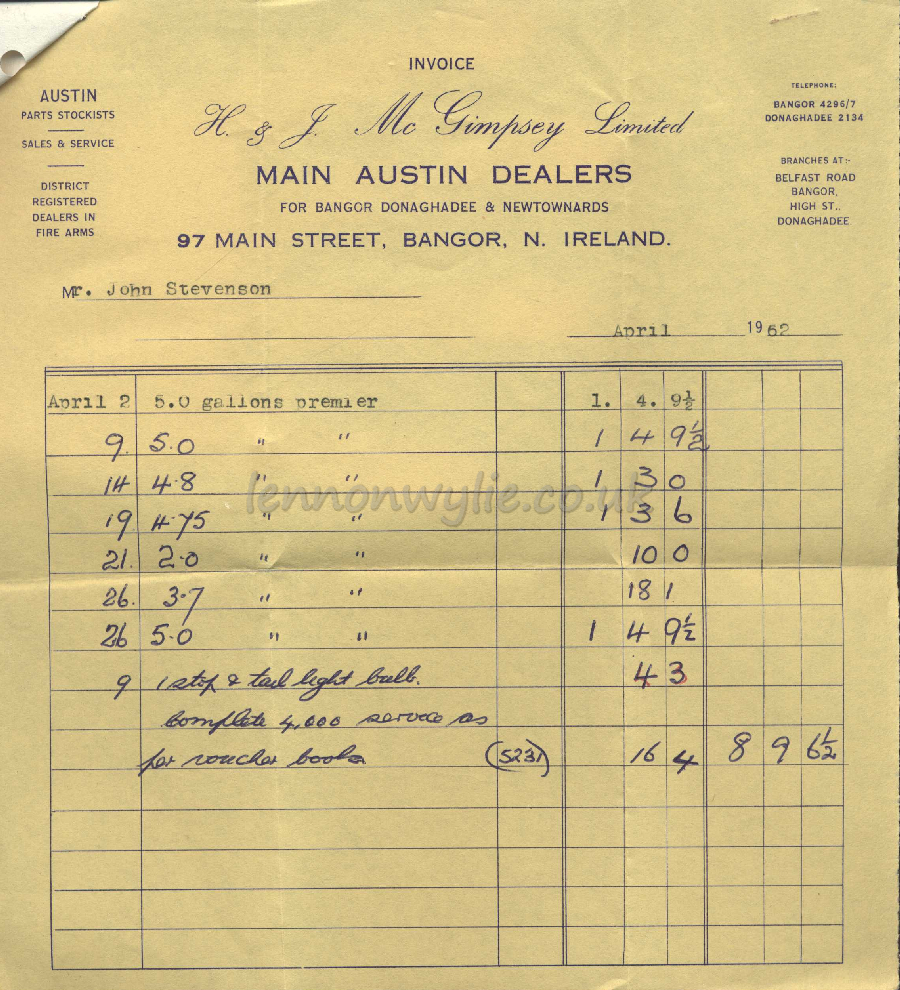 INVOICE
AUSTIN
PARTS STOCKISTS
SALES & SERVICE
DISTRICT
REGISTERED
DEALERS IN
FIRE ARMS
H. & J. Mc Gimpsey Limited
MAIN AUSTIN DEALERS
FOR BANGOR DONAGHADEE & NEWTOWNARDS
97 MAIN STREET, BANGOR, N. IRELAND.
TELEPHONE:
BANGOR 4296/7
DONAGHADEE 2134
BRANCHES AT:-
BELFAST ROAD
BANGOR,
HIGH ST.,
DONAGHADEE
Mr. John Stevenson
April 1962
April 2 5.0 gallons premier 1. 4. 9½
9. 5.0 " " 1 4 9½
14 4.8 " " 1 3 0
19 4.75 " " 1 3 6
21. 2.0 " " 10 0
26. 3.7 " " 18 1
26 5.0 " " 1 4 9½
9 1 stop & tail light bulb. 4 3
Complete 4,000 service as
per voucher book (5231) 16 4 8 9 6½
lennonwylie.co.uk